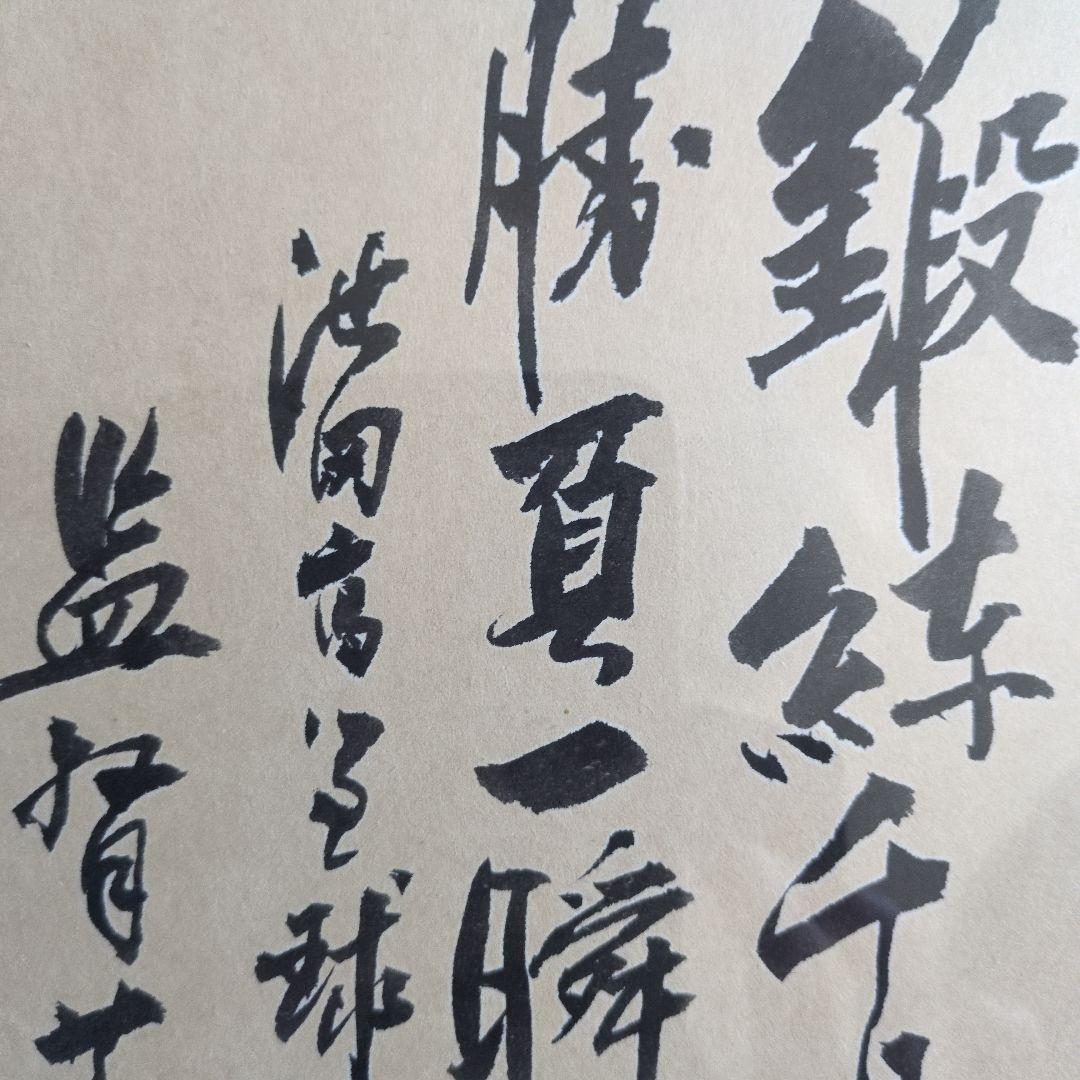 鍛練千
勝負一瞬
池田高野球
監督